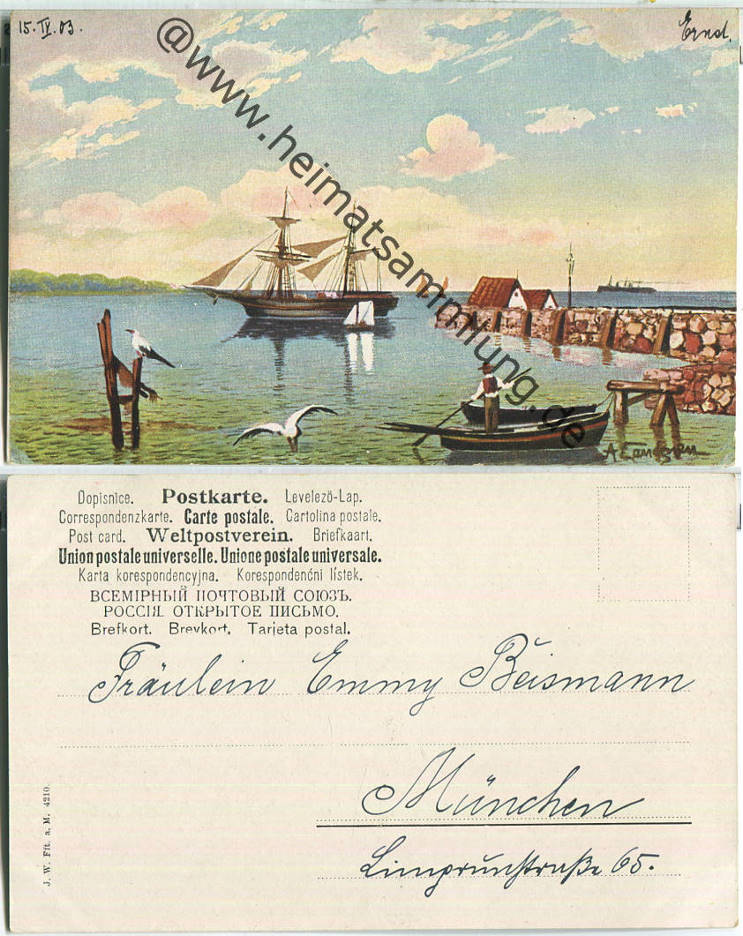 15.IV.03.
Ernst.
@www.heimatsammlung.de
Dopisnice. Postkarte. Levelezö-Lap.
Correspondenzkarte. Carte postale. Cartolina postale.
Post card. Weltpostverein. Briefkaart.
Union postale universelle. Unione postale universale.
Karta korespondencyjna. Korespondenční lístek.
ВСЕМІРНЫЙ ПОЧТОВЫЙ СОЮЗЪ.
РОССІЯ. ОТКРЫТОЕ ПИСЬМО.
Brefkort. Brevkort. Tarjeta postal.
Fräulein Emmy Beismann
München
Limprunstraße 65.
J. W. Fft. a. M. 4210.